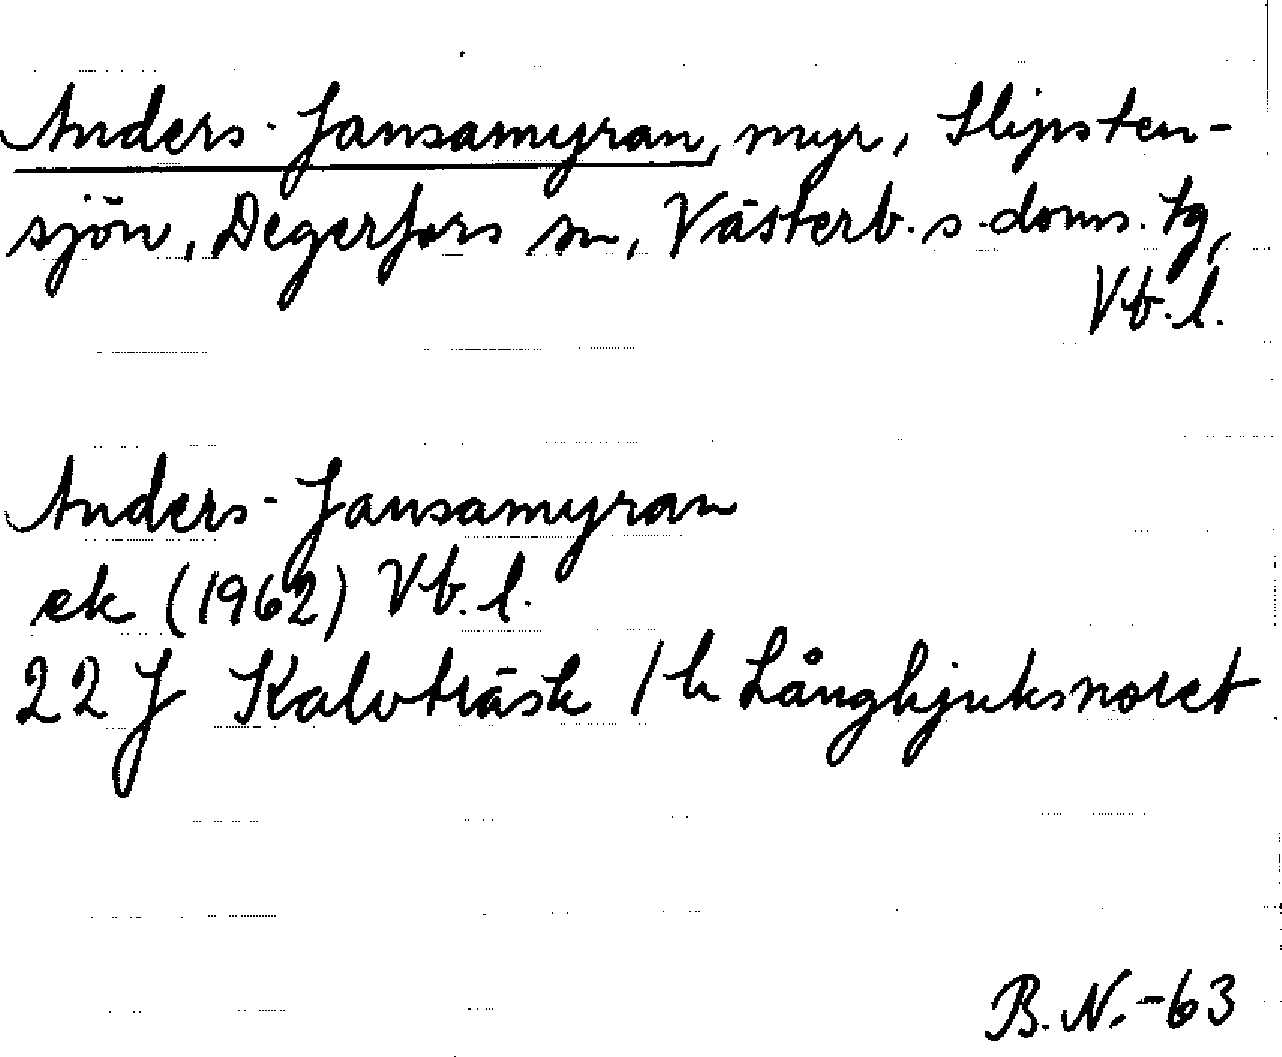 Anders-Jansamyran, myr, Slipsten-
sjön, Degerfors sn, Västerb. s. doms. tg,
Vb. l.
Anders-Jansamyran
ek (1962) Vb. l.
22 J Kalvträsk 1 h Långhjuksnoret
B. N. -63